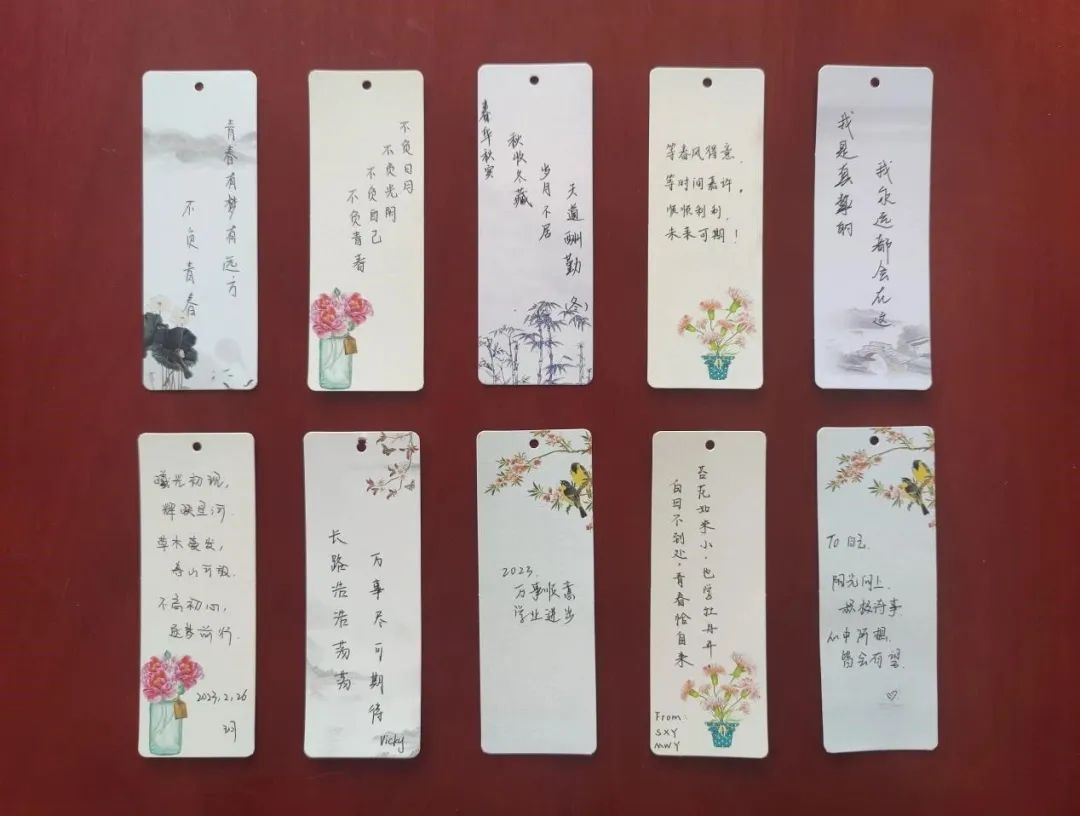 青春有梦有远方
不负青春
不负日月
不负光阴
不负自己
不负青春
春华秋实
秋收冬藏
岁月不居
天道酬勤
(冬)
等春风得意,
等时间嘉许。
顺顺利利,
未来可期！
我是真挚的
我永远都会在这
曦光初现,
辉映星河.
草木蔓发,
春山可望.
初心,
逐梦前行.
2023.2.26
长路浩浩荡荡
万事尽可期待
Vicky
2023.
万事顺意
学业进步
白日不到处,青春恰自来
苔花如米小,也学牡丹开
From:
SXY
MWY
To 自己
阳光向上
积极待事
心中所想
皆会有望.